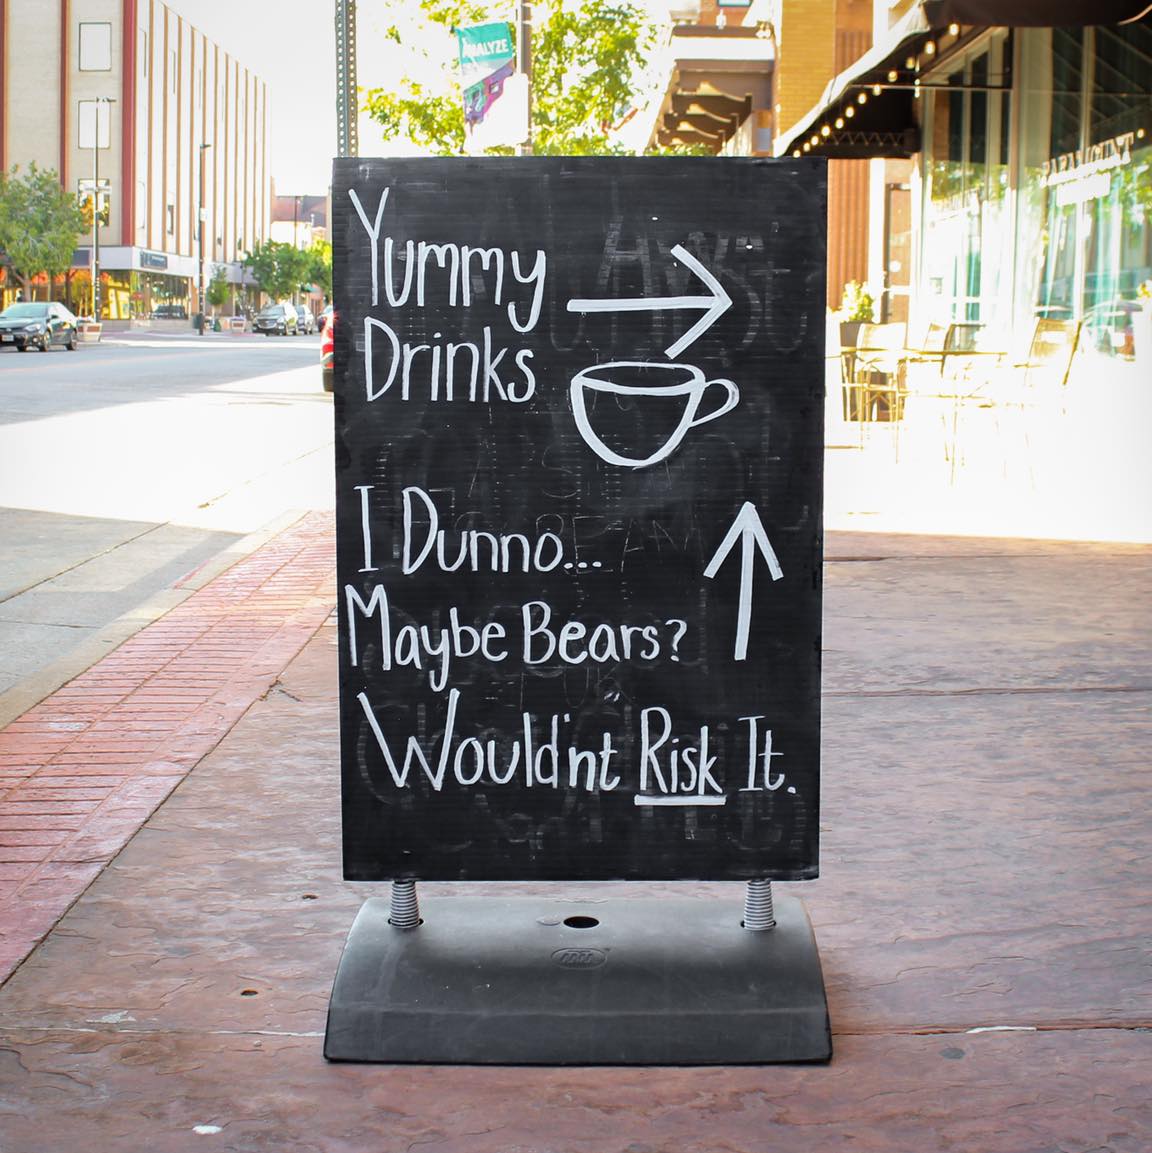 ANALYZE
PARAMOUNT
Yummy
Drinks
I Dunno...
Maybe Bears?
Would'nt Risk It.